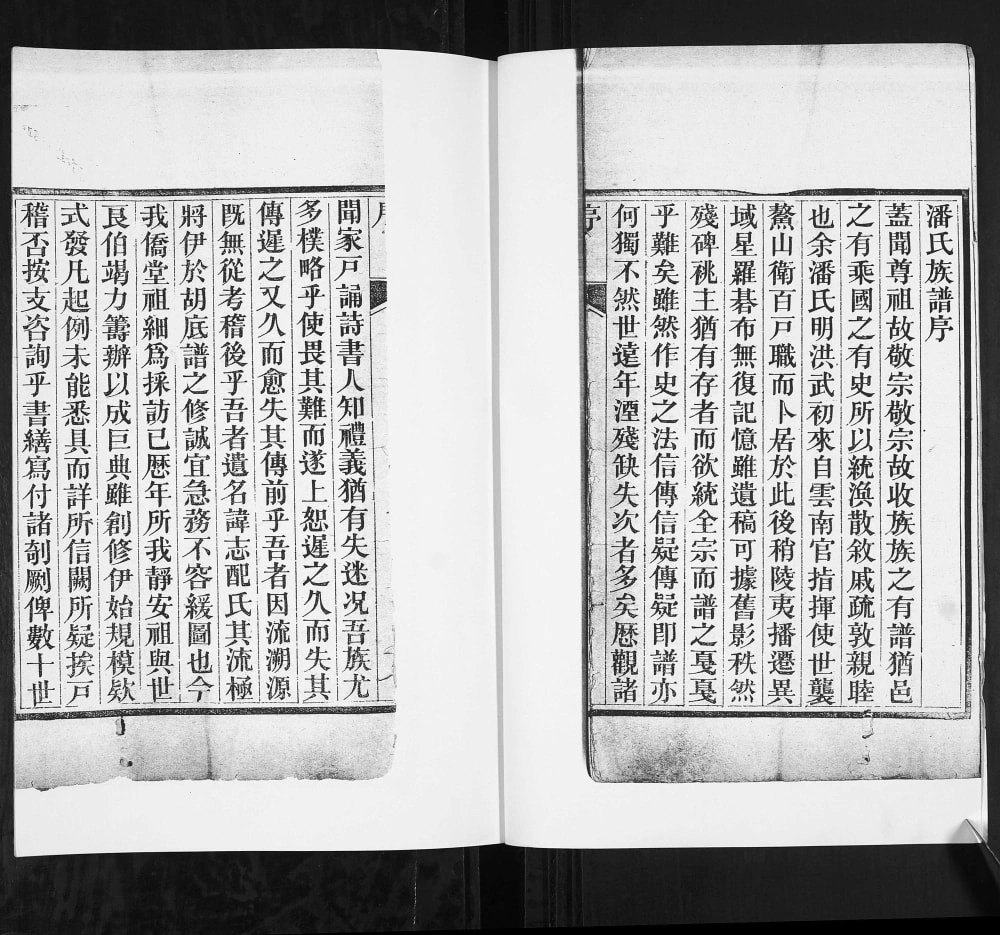 潘氏族譜序
蓋聞尊祖故敬宗敬宗故收族族之有譜猶邑
之有乘國之有史所以統渙散敘戚疏敦親睦
也余潘氏明洪武初來自雲南官指揮使世襲
鰲山衛百戸職而卜居於此後稍陵夷播遷異
域星羅碁布無復記憶雖遺稿可據舊影秩然
殘碑祧主猶有存者而欲統全宗而譜之戛戛
乎難矣雖然作史之法信傳信疑傳疑即譜亦
何獨不然世遠年湮殘缺失次者多矣歴觀諸
序
序
聞家戸誦詩書人知禮義猶有失迷况吾族尤
多樸略乎使畏其難而遂上恕遲之久而失其
傳遲之又久而愈失其傳前乎吾者因流溯源
既無從考稽後乎吾者遺名諱志配氏其流極
將伊於胡底譜之修誠宜急務不容緩圖也今
我僑堂祖細爲採訪已歴年所我靜安祖與世
良伯竭力籌辦以成巨典雖創修伊始規模欵
式發凡起例未能悉具而詳所信闕所疑挨戸
稽否按支咨詢乎書繕寫付諸剞劂俾數十世